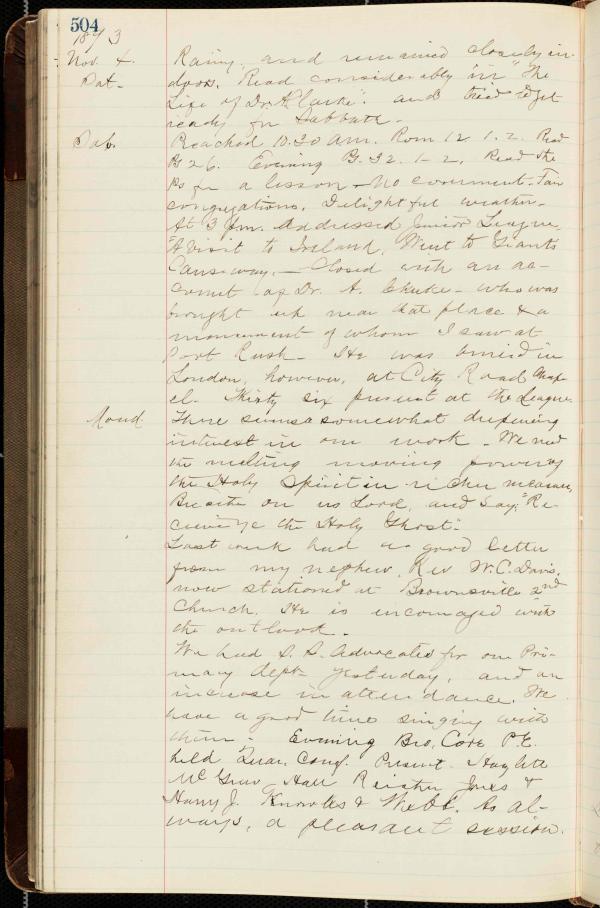 504
1893
Nov. 4. Rainy, and remained closely in-
Sat. doors. Read considerably in "The
Life of Dr. A. Clarke" and tried to get
ready for Sabbath.
Sab. Preached 10.30 am. Rom 12. 1.2. Read
Ps 26. Evening Ps. 32. 1-2, Read the
Ps for a lesson - No comment. Fair
congregations. Delightful weather.
At 3 pm. addressed Junior League,
"A visit to Ireland, Went to Giants
Causeway. - Closed with an ac-
count of Dr. A. Clarke - who was
brought up near that place & a
monument of whom I saw at
Port Rush - He was buried in
London, however, at City Road Chap-
el. Thirty six present at the League.
Mond. There seems a somewhat deepening
interest in our work. We need
the melting moving power of
the Holy Spirit in richer measure,
Breathe on us Lord, and say; "Re-
ceive ye the Holy Ghost."
Last week had a good letter
from my nephew, Rev W. C. Davis,
now stationed at Brownsville 2nd
Church. He is encouraged with
the outlook.
We had S. S. Advocates for our Pri-
mary Dept yesterday, and an
increase in attendance. We
have a good time singing with
them. Evening Bro. Core P.E.
held Quar. Conf. Present.
McGrew Hall Jones &
Harry J. Knowles & Webb. As al-
ways, a pleasant session.